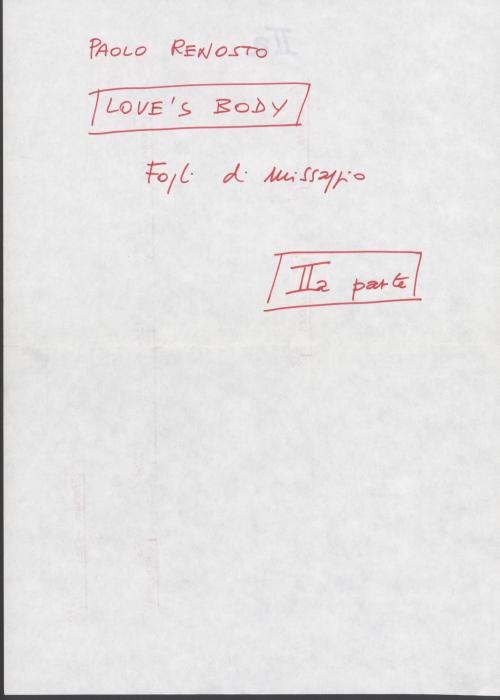 PAOLO RENOSTO
LOVE'S BODY
Fogli di missaggio
IIa parte